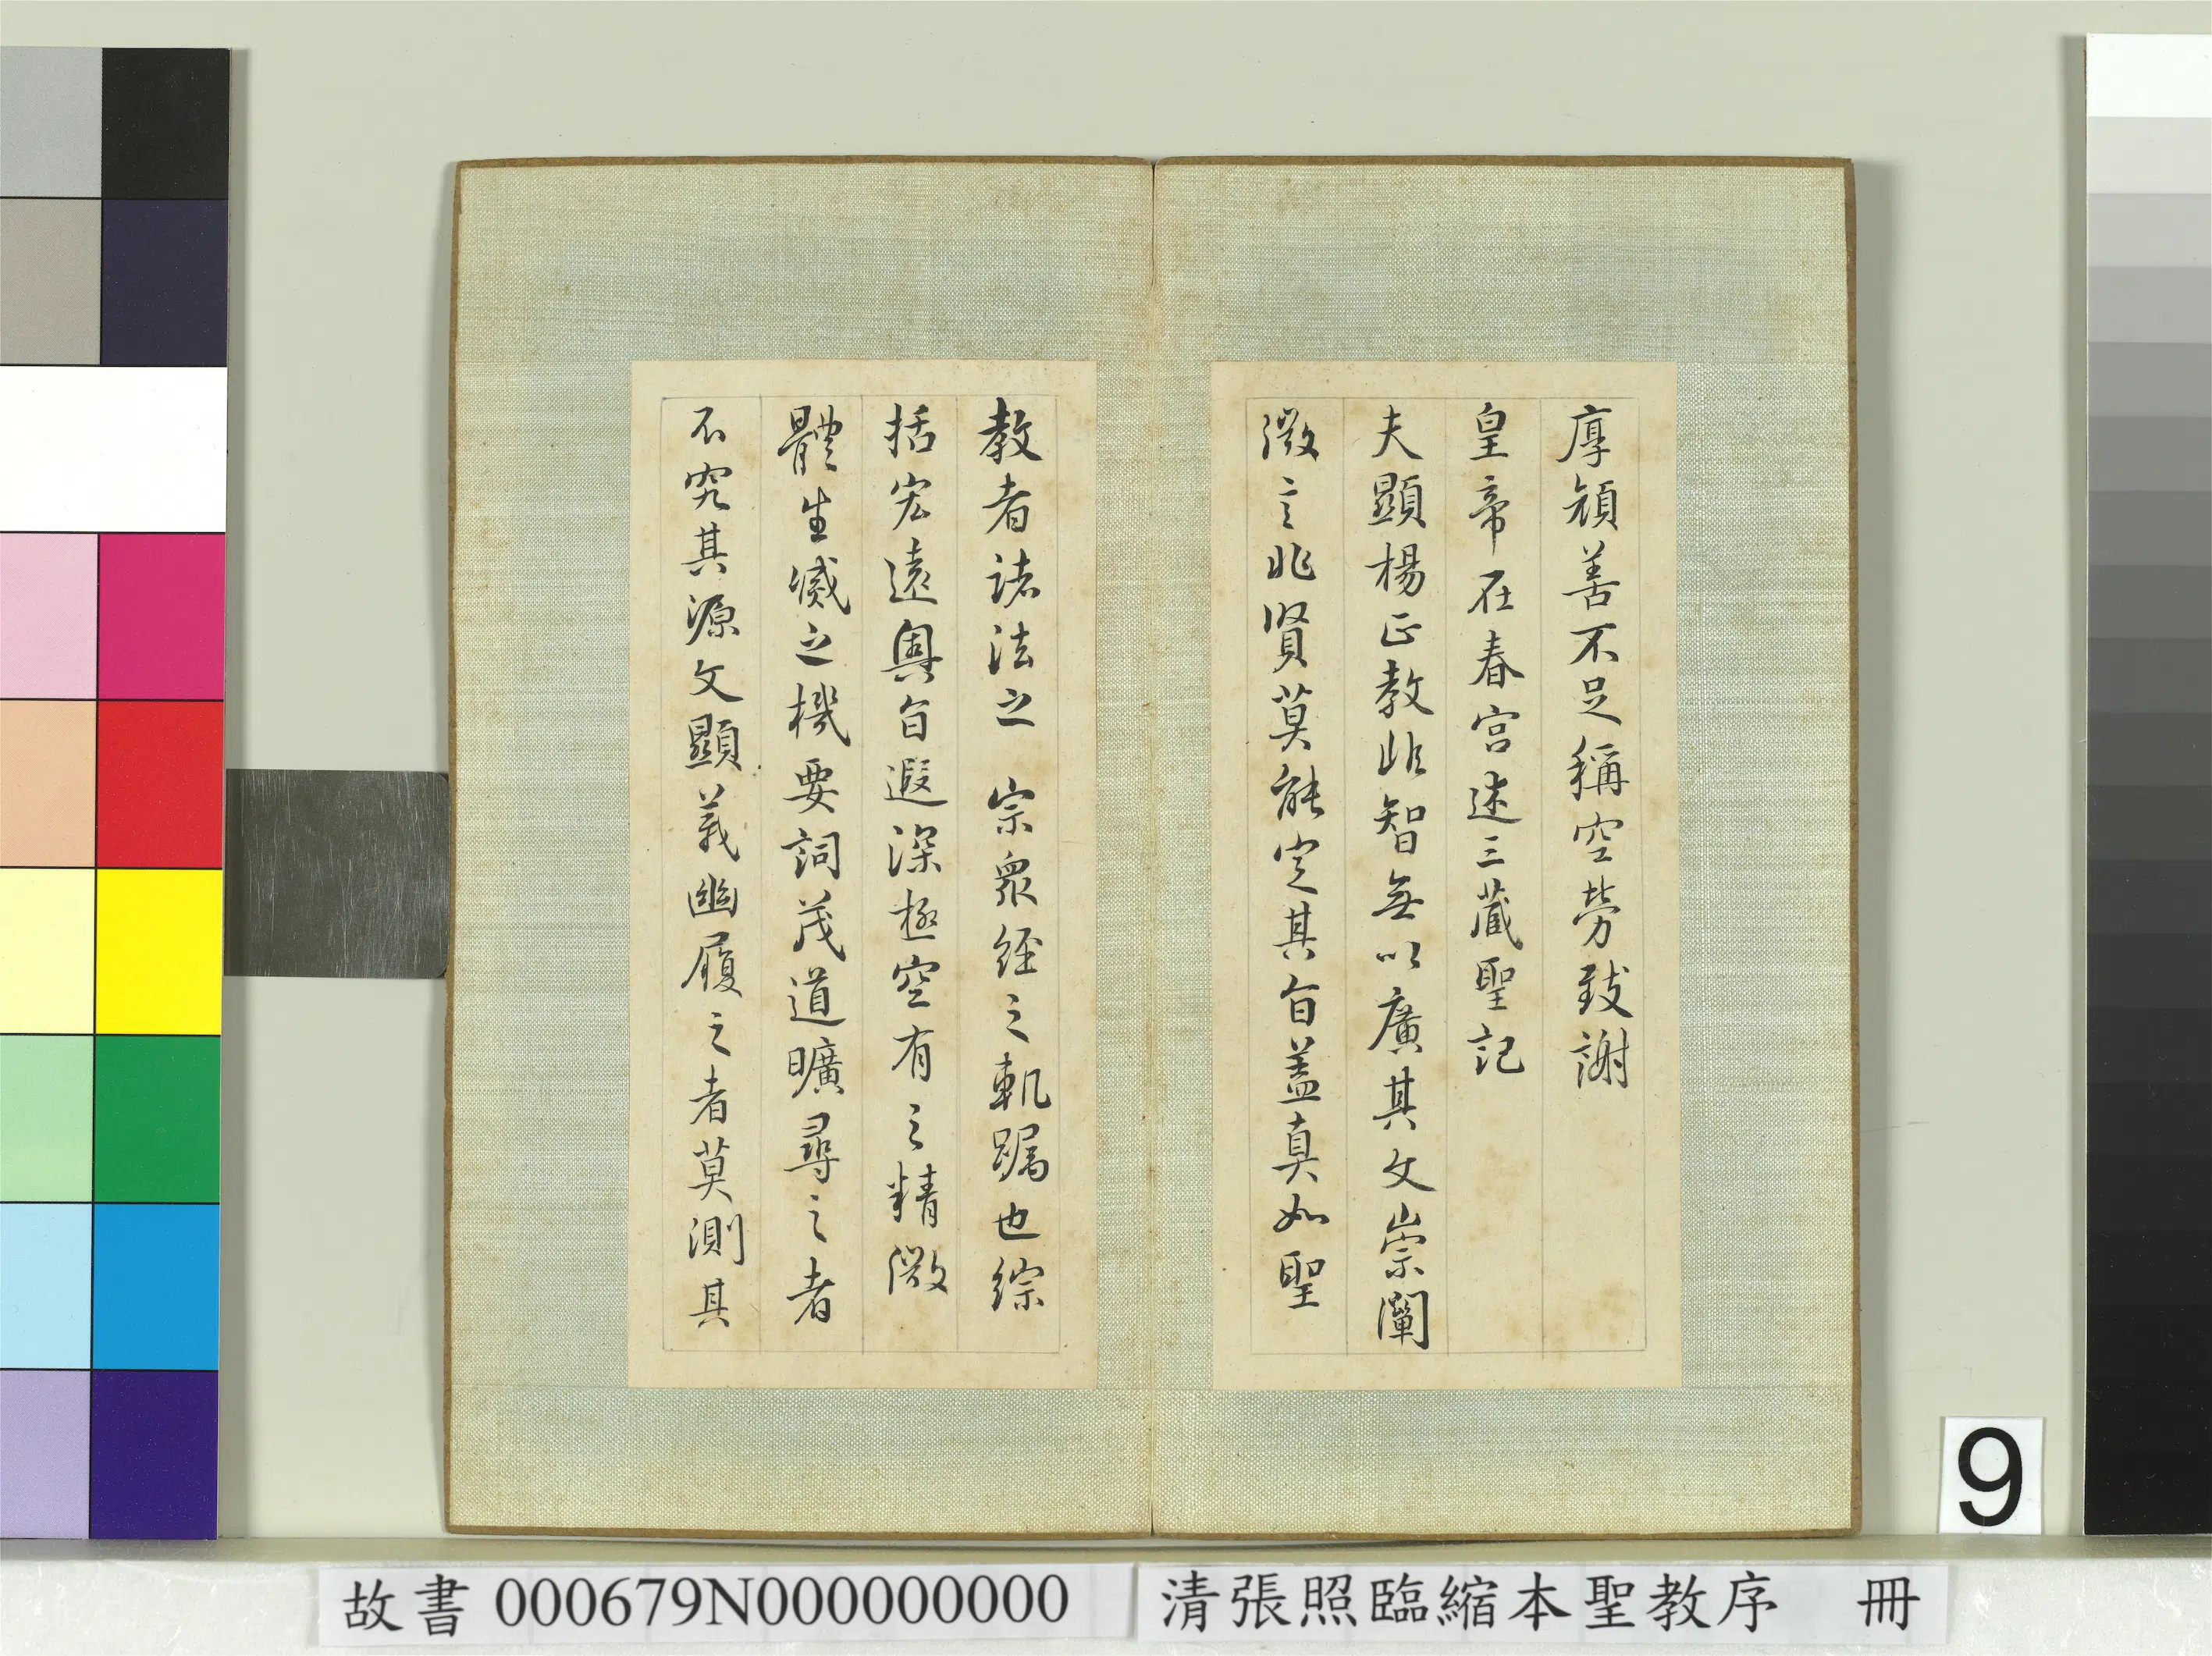 厚顔善不足稱空勞致謝
皇帝在春宮述三藏聖記
夫顯楊正教非智無以廣其文崇闡
微言非賢莫能定其旨盖真如聖
教者諸法之 宗衆經之軌躅也綜
括宏遠奧旨遐深極空有之精微
體生滅之機要詞茂道曠尋之者
不究其源文顯義幽履之者莫測其
9
故書 000679N000000000
清張照臨縮本聖教序 冊